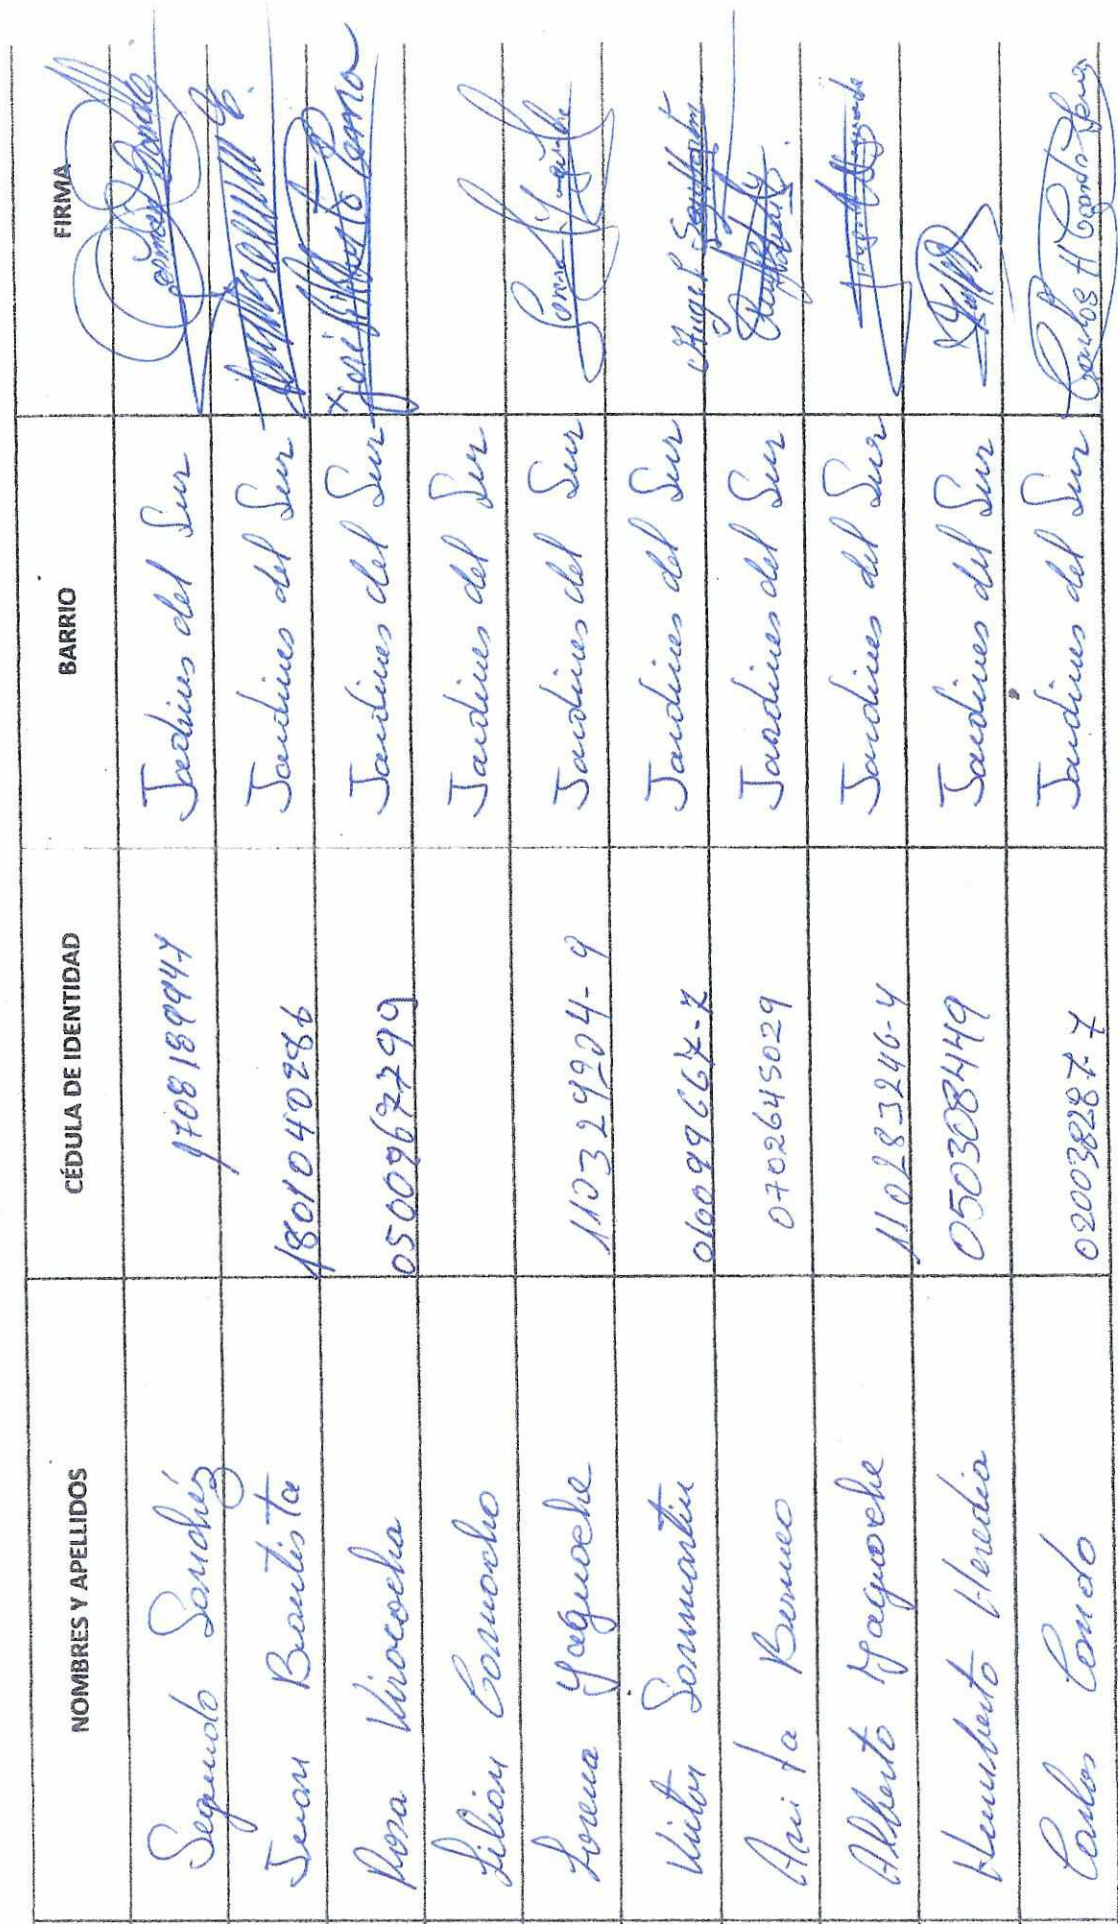 NOMBRES Y APELLIDOS CÉDULA DE IDENTIDAD BARRIO FIRMA
Segundo Sanchéz 1708189947 Jardines del Sur
Juan Bautista 1801040286 Jardines del Sur
Rosa Viracocha 0500967299 Jardines del Sur José Alberto Lema
Lilian Camacho Jardines del Sur
Lorena Yaguache 110329924-9 Jardines del Sur
Victor Sanmartin 060099667-7 Jardines del Sur Angel Sanmartin
Anita Burneo 0702645029 Jardines del Sur
Alberto Yaguache 110283246-4 Jardines del Sur
Humberto Heredia 050308449 Jardines del Sur
Carlos Condo 020038287-7 Jardines del Sur Carlos H Condo